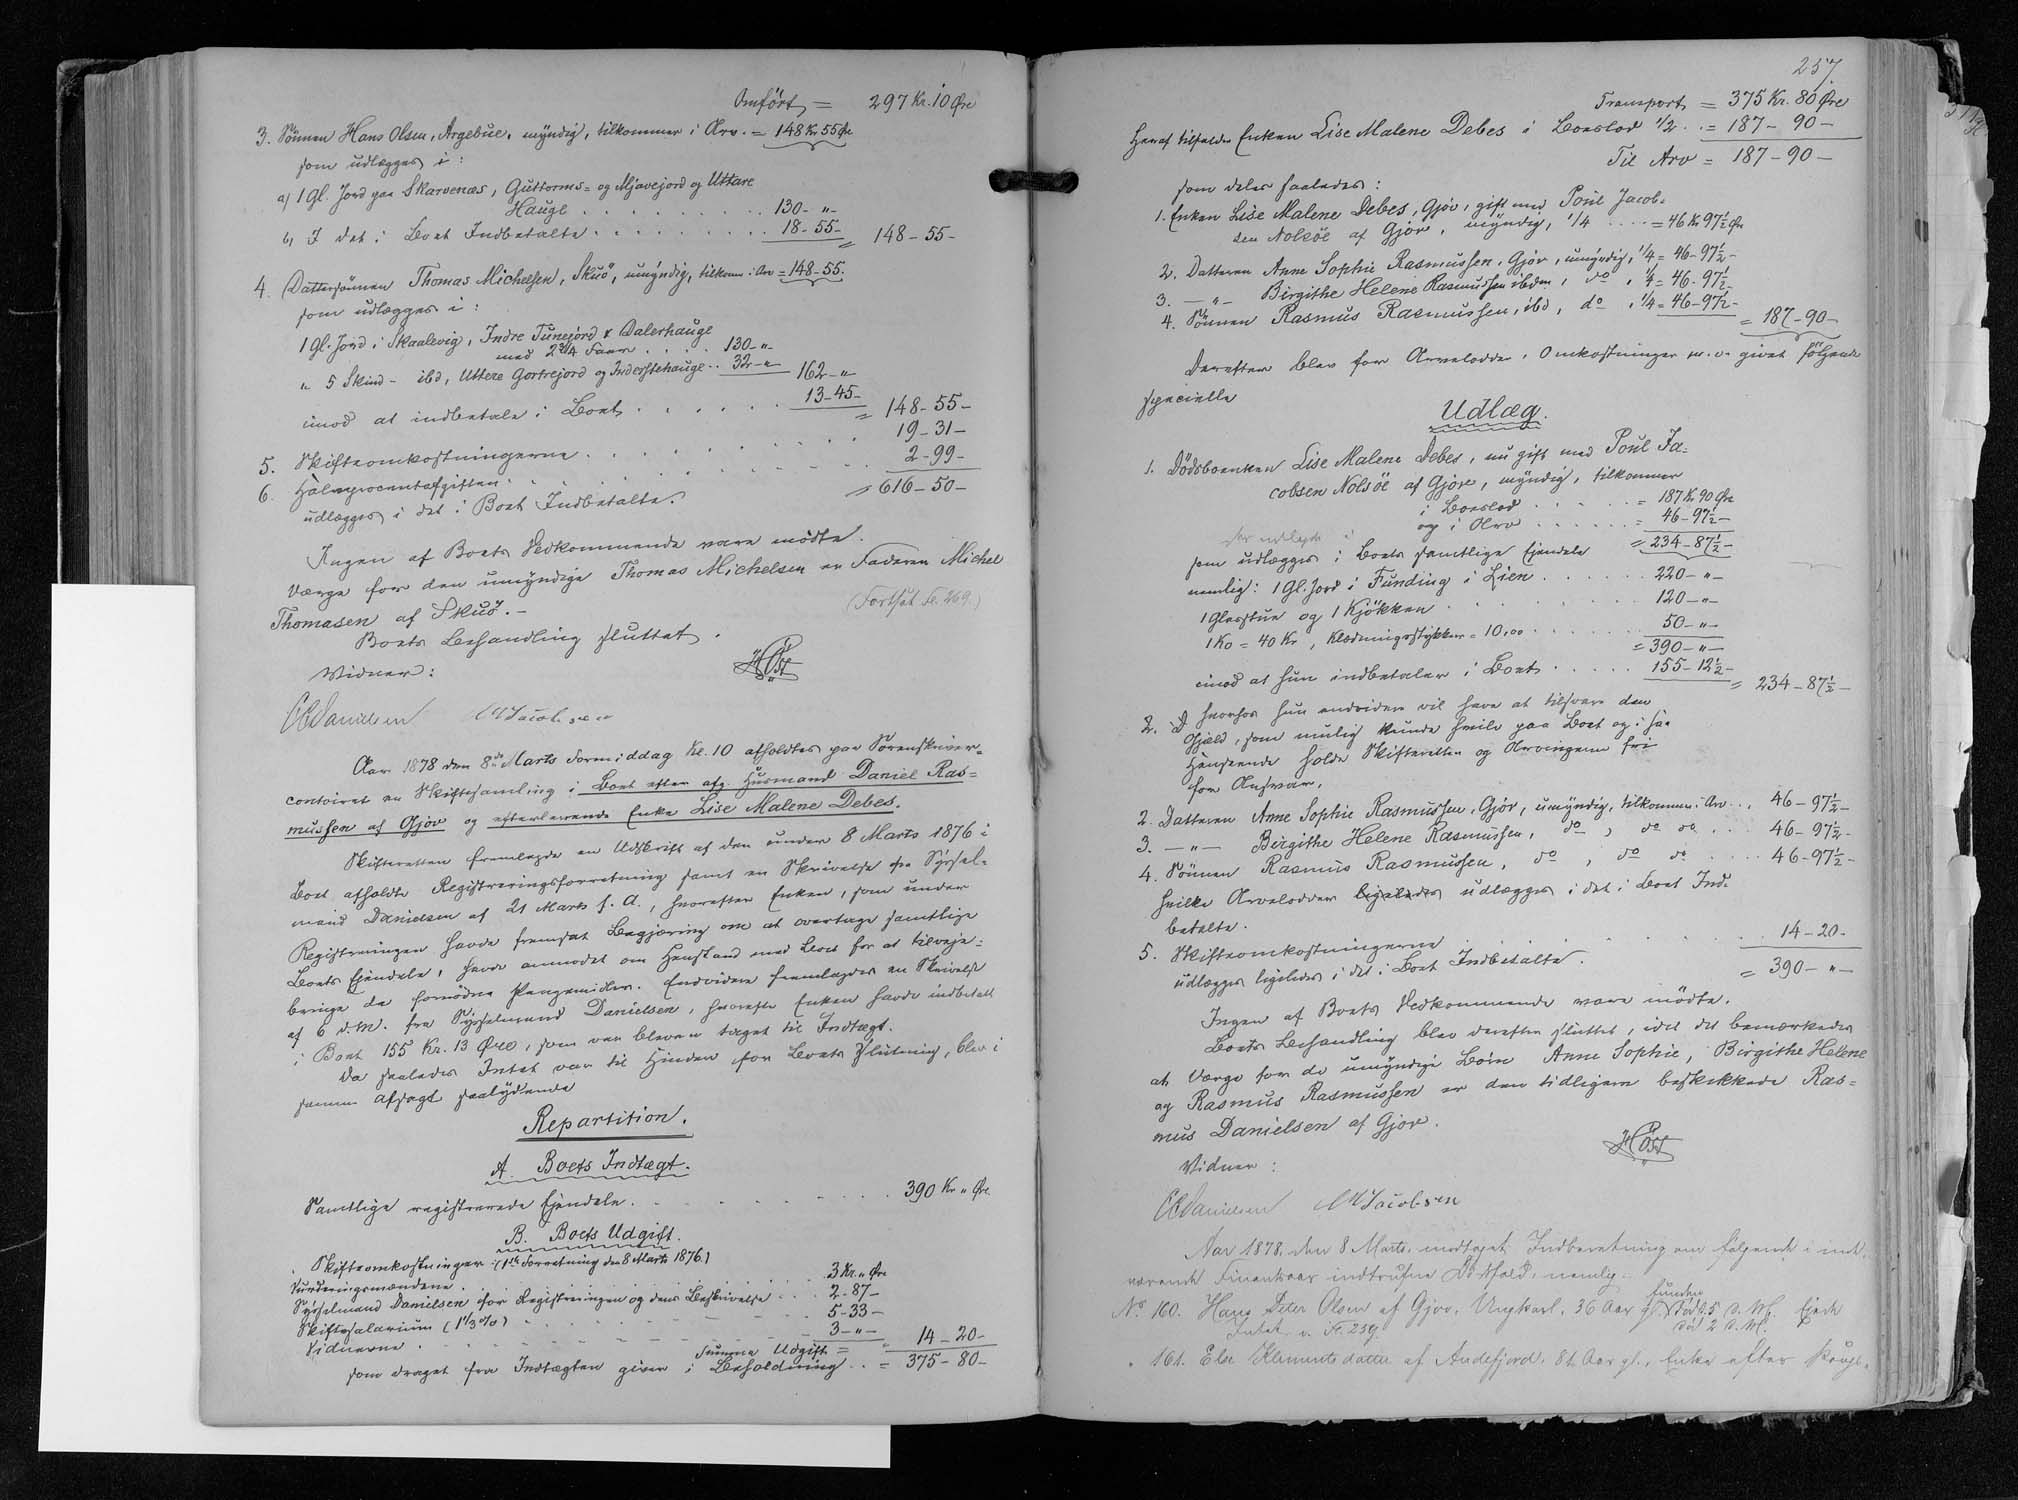 Omført = 297 Kr. 10 Øre
3. Sønnen Hans Olsen, Argebue, myndig, tilkommer i Arv. = 148 Kr 55 Øre
som udlægges i:
a) 1 Gl. Jord paa Skarvenæs, Guttorms= og Mjavejord og Uttare
Hauge . . . 130 - " -
b, I det i Boet Indbetalte . . . 18 - 55 - = 148 - 55 -
4. Dattersønnen Thomas Michelsen, Skuö, umyndig, tilkom. i Arv = 148 - 55.
som udlægges i:
1 Gl. Jord i Skaalevig, Indre Tunejord & Dalerhauge
med 2 3/4 Faar . . . 130 - " -
" 5 Skind - ibd, Uttere Gortrejord og Inderstehauge . . 32 - " - 162 - "
imod at indbetale i Boet . . . 13 - 45 - = 148 - 55 -
5. Skifteomkostningerne . . . 19 - 31 -
6. Halvprocentafgiften . . . 2 - 99 -
udlægges i det i Boet Indbetalte. = 616 - 50 -
Ingen af Boets Vedkommende vare mødte.
Værge for den umyndige Thomas Michelsen er Faderen Michel
Thomasen af Skuö. -
(Fortsat Fo. 269.)
Boets Behandling sluttet.
Vidner:
HOst
CCDanielsen MJacobsen
Aar 1878 den 8de Marts Formiddag Kl. 10 afholdtes paa Sorenskriver=
contoiret en Skiftesamling i Boet efter afg. Husmand Daniel Ras=
mussen af Gjov og efterlevende Enke Lise Malene Debes.
Skifteretten fremlagde en Udskrift af den under 8 Marts 1876 i
Boet afholdte Registreringsforretning samt en Skrivelse fra Syssel=
mand Danielsen af 21 Marts s. A., hvorefter Enken, som under
Registreringen havde fremsat Begjæring om at overtage samtlige
Boets Ejendele, havde anmodet om Henstand med Boet for at tilveje=
bringe de fornødne Pengemidler. Endvidere fremlagdes en Skrivelse
af 6 d. M. fra Sysselmand Danielsen, hvorefter Enken havde indbetalt
i Boet 155 Kr. 13 Øre, som var bleven taget til Indtægt.
Da saaledes Intet var til Hinder for Boets Slutning, blev i
samme afsagt saalydende
Repartition.
A. Boets Indtægt.
Samtlige registrerede Ejendele . . . 390 Kr " Øre
B. Boets Udgift.
Skifteomkostninger: (1ste Forretning den 8 Marts 1876.)
Vurderingsmændene . . . 3 Kr. " Øre
Sysselmand Danielsen for Registreringen og dens Beskrivelse . . . 2 - 87 -
Skiftesalarium (1 1/3 %) . . . 5 - 33 -
Vidnerne . . . 3 - " - 14 - 20 -
Summa Udgift =
som draget fra Indtægten giver i Beholdning . . = 375 - 80 -
257.
Transport = 375 Kr. 80 Øre
Heraf tilfalder Enken Lise Malene Debes i Boeslod 1/2 . . = 187 - 90 -
Til Arv = 187 - 90 -
som deles saaledes:
1. Enken Lise Malene Debes, Gjov, gift med Poul Jacob=
sen Nolsöe af Gjov, myndig, 1/4 . . . = 46 Kr 97 1/2 Øre
2. Datteren Anne Sophie Rasmussen, Gjov, umyndig, 1/4 = 46 - 97 1/2 -
3. - " - Birgithe Helene Rasmussen ibdm, do, 1/4 = 46 - 97 1/2 -
4. Sønnen Rasmus Rasmussen, ibd, do, 1/4 = 46 - 97 1/2 -
= 187 - 90 -
Derefter blev for Arvelodder, Omkostninger m. v. givet følgende
specielle
Udlæg.
1. Dødsboenken Lise Malene Debes, nu gift med Poul Ja=
cobsen Nolsöe af Gjov, myndig, tilkommer
i Boeslod . . . = 187 Kr 90 Øre
og i Arv . . . = 46 - 97 1/2 -
som udlægges i Boets samtlige Ejendele = 234 - 87 1/2 -
nemlig: 1 Gl. Jord i Funding i Lien . . . 220 - " -
1 Glasstue og 1 Kjøkken . . . 120 - " -
1 Ko = 40 Kr, Klædningsstykker = 10,00 . . . 50 - " -
= 390 - " -
imod at hun indbetaler i Boet . . . 155 - 12 1/2 - = 234 - 87 1/2 -
hvorhos hun endvidere vil have at tilsvare den
Gjæld, som mulig kunde hvile paa Boet og i saa
Henseende holde Skifteretten og Arvingerne fri
for Ansvar.
2. Datteren Anne Sophie Rasmussen, Gjov, umyndig, tilkommer i Arv . . 46 - 97 1/2 -
3. - " - Birgithe Helene Rasmussen, do, do do . . 46 - 97 1/2 -
4. Sønnen Rasmus Rasmussen, do, do do . . . 46 - 97 1/2 -
hvilke Arvelodder ligeledes udlægges i det i Boet Ind=
betalte.
5. Skifteomkostningerne . . . 14 - 20 -
udlægges ligeledes i det i Boet Indbetalte. = 390 - " -
Ingen af Boets Vedkommende vare mødte.
Boets Behandling blev derefter sluttet, idet det bemærkedes
at Værge for de umyndige Børn Anne Sophie, Birgithe Helene
og Rasmus Rasmussen er den tidligere beskikkede Ras=
mus Danielsen af Gjov.
HOst
Vidner:
CCDanielsen MJacobsen
Aar 1878, den 8 Marts, modtaget Indberetning om følgende i nær=
værende Finantsaar indtrufne Dödsfald, nemlig:
No 160. Hans Peter Olsen af Gjov, Ungkarl, 36 Aar gl. funden död 5 d. M. Ejede
Intet v. Fo. 259. död 2 d. M.
" 161. Else Klementsdatter af Andefjord, 81 Aar gl., Enke efter